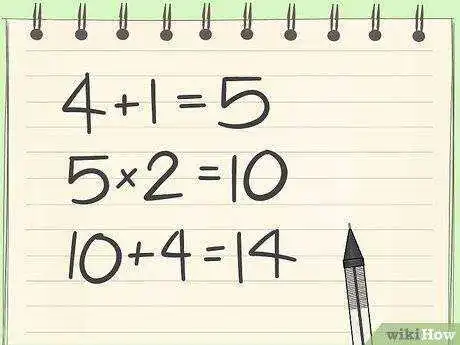 4+1=5
5×2=10
10+4=14
wikiHow